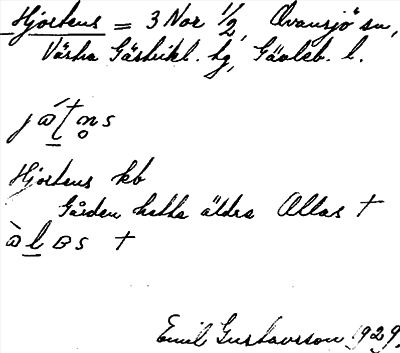 Hjortens = 3 Nor 1/2, Ovansjö sn,
Västra Gästrikl. hg, Gävleb. l.
Hjortens kb
Gården hette äldre Ollas †
Emil Gustavsson 1929.